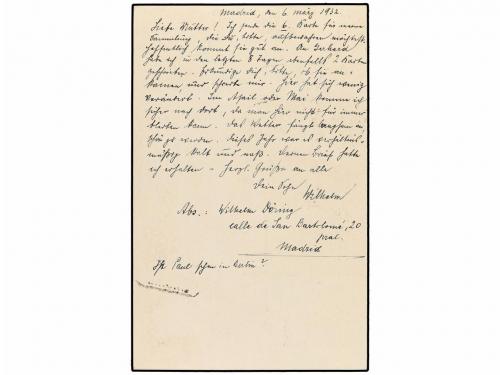 Madrid, den 6. März 1932.
Liebe Mutter! Ich sende die 6. Karte für meine
Sammlung, die Du, bitte, aufbewahren möchtest.
Hoffentlich kommt sie gut an. An Gerhard
habe ich in den letzten 8 Tagen ebenfalls 2 Karten
geschrieben. Erkundige Dich, bitte, ob sie an-
kamen und schreib mir. Hier hat sich wenig
verändert. Im April oder Mai komme ich
sicher nach dort, da man hier nicht für immer
bleiben kann. Das Wetter fängt langsam an
schön zu werden. Dieses Jahr war es verhältnis-
mässig kalt und naß. Deinen Brief hatte
ich erhalten - Herzl. Grüße an alle
Dein Sohn
Wilhelm
Abs.: Wilhelm Döring
calle de San Bartolomé, 20
pral.
Madrid
Ist Paul schon in Berlin?